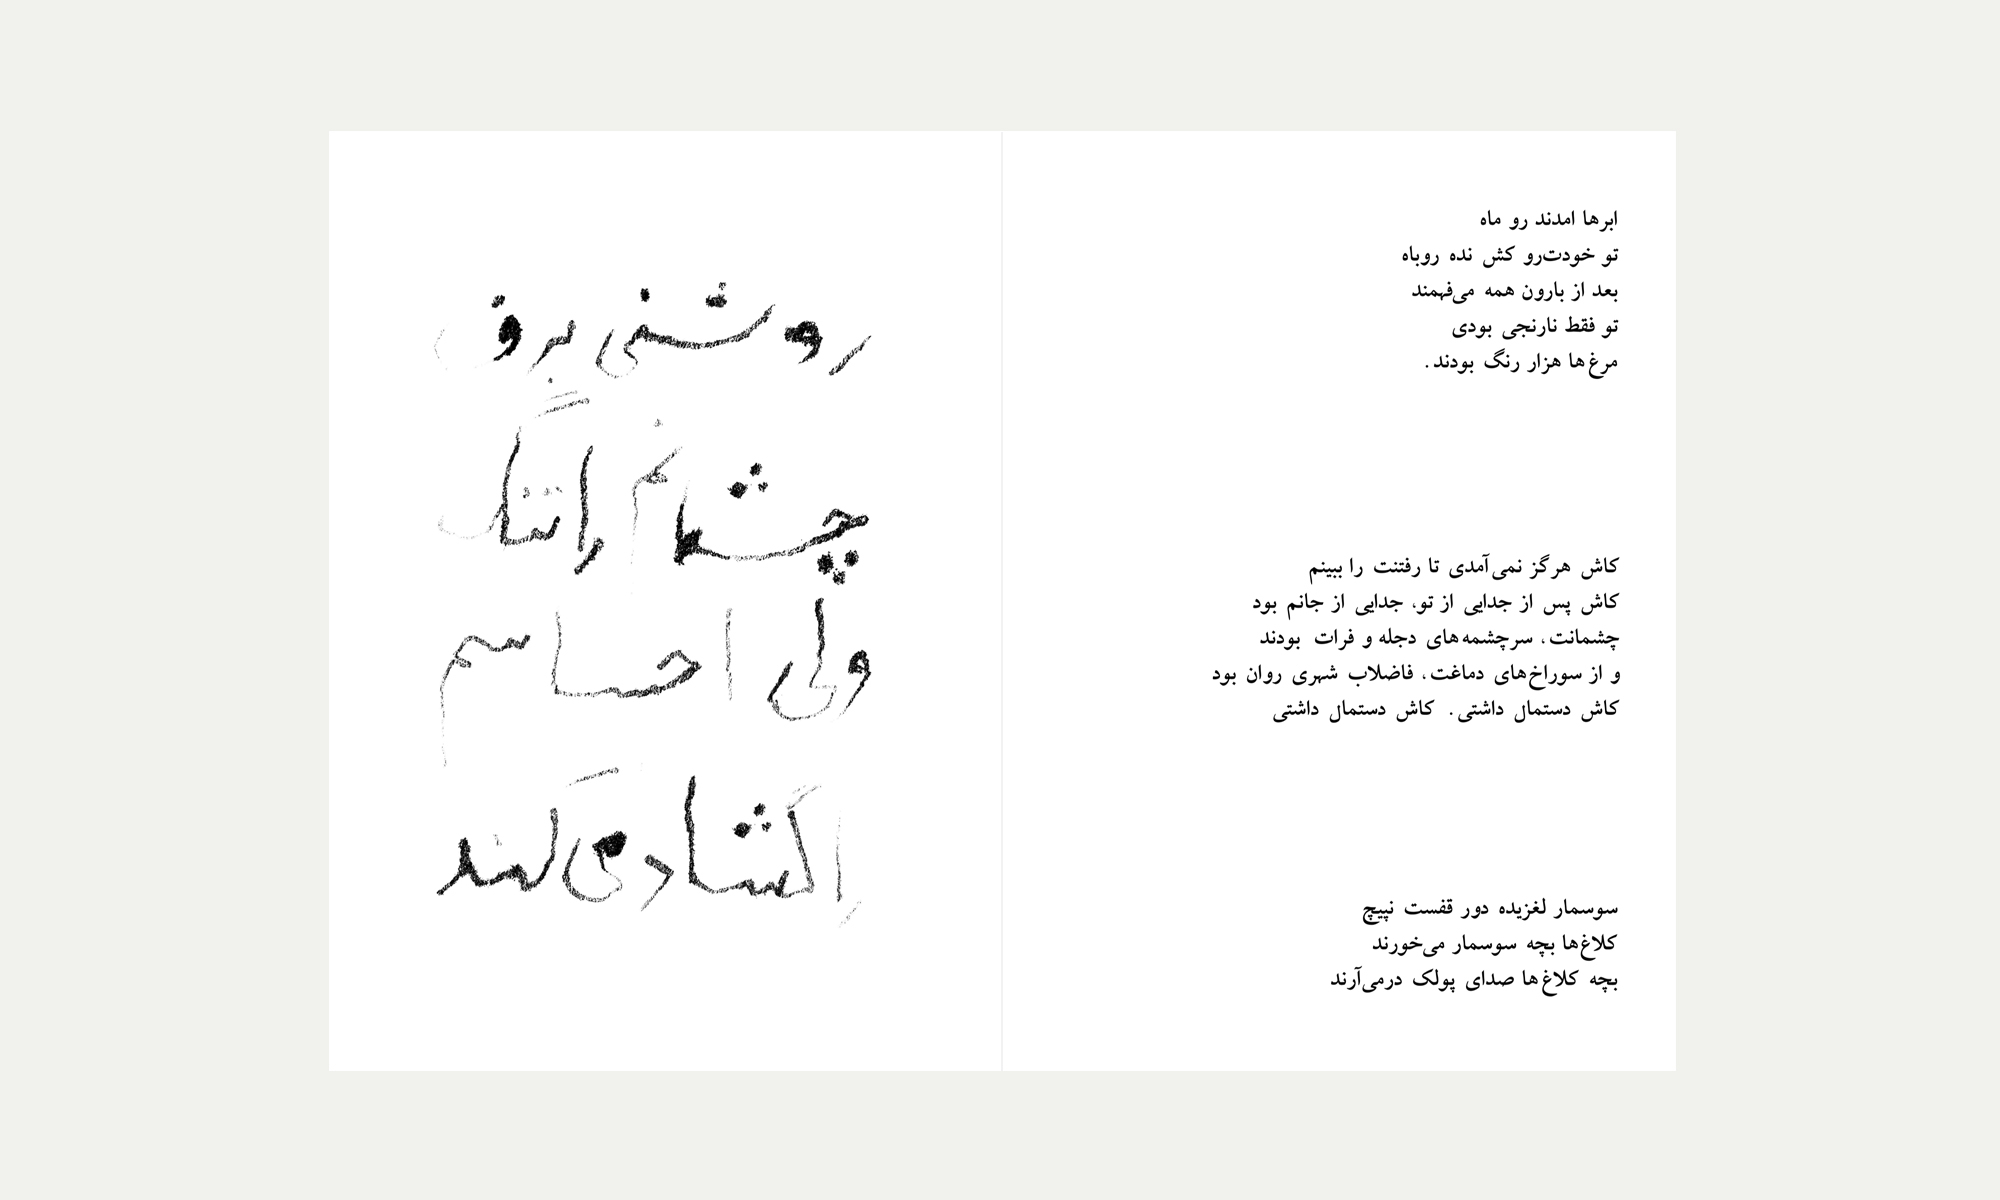 ابرها امدند رو ماه
تو خودت‌رو کش نده روباه
بعد از بارون همه می‌فهمند
تو فقط نارنجی بودی
مرغ‌ها هزار رنگ بودند.
کاش هرگز نمی‌آمدی تا رفتنت را ببینم
کاش پس از جدایی از تو، جدایی از جانم بود
چشمانت، سرچشمه‌های دجله و فرات بودند
و از سوراخ‌های دماغت، فاضلاب شهری روان بود
کاش دستمال داشتی. کاش دستمال داشتی
سوسمار لغزیده دور قفست نپیچ
کلاغ‌ها بچه سوسمار می‌خورند
بچه کلاغ‌ها صدای پولک درمی‌آرند
روشنی برف
چشمانم را تنگ
ولی احساسم
را گشاد می‌کند